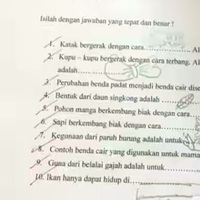 Isilah dengan jawaban yang tepat dan benar !
1. Katak bergerak dengan cara
2. Kupu - kupu bergerak dengan cara terbang. Al
adalah
3. Perubahan benda padat menjadi benda cair dise
4. Bentuk dari daun singkong adalah
5. Pohon mangga berkembang biak dengan cara
6. Sapi berkembang biak dengan cara
7. Kegunaan dari paruh burung adalah untuk
8. Contoh benda cair yang digunakan untuk mama
9. Guna dari belalai gajah adalah untuk
10. Ikan hanya dapat hidup di